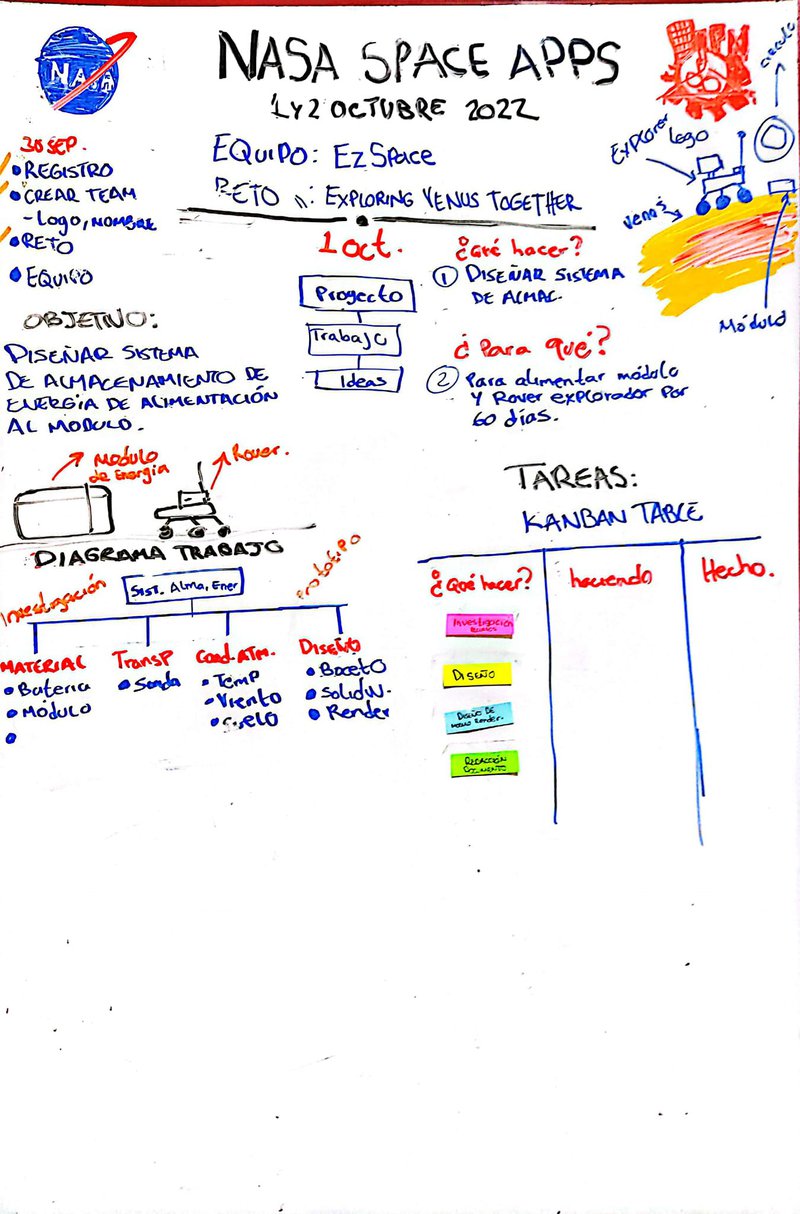 NASA
NASA SPACE APPS
1 Y 2 OCTUBRE 2022
EQUIPO: EZSPACE
RETO : EXPLORING VENUS TOGETHER
30 SEP.
REGISTRO
CREAR TEAM
- Logo, NOMBRE
RETO
EQUIPO
OBJETIVO:
DISEÑAR SISTEMA
DE ALMACENAMIENTO DE
ENERGÍA DE ALIMENTACIÓN
AL MODULO.
1 oct.
Proyecto
Trabajo
Ideas
¿Qué hacer?
1 DISEÑAR SISTEMA
DE ALMAC.
¿Para qué?
2 Para alimentar módulo
Y Rover explorador por
60 días.
Explorer
Lego
Venus
Módulo
Modulo
de Energía
Rover.
DIAGRAMA TRABAJO
Investigación
Sist. Alma, Ener
Prototipo
MATERIAL
Bateria
Módulo
Transp
Sonda
Cond. ATM.
Temp
Viento
DISEÑO
Boceto
SolidW.
Render
TAREAS:
KANBAN TABLE
¿Qué hacer?
haciendo
Hecho.
Investigación
DISEÑO
DISEÑO DE
Render.
REDACCIÓN
DOCUMENTO